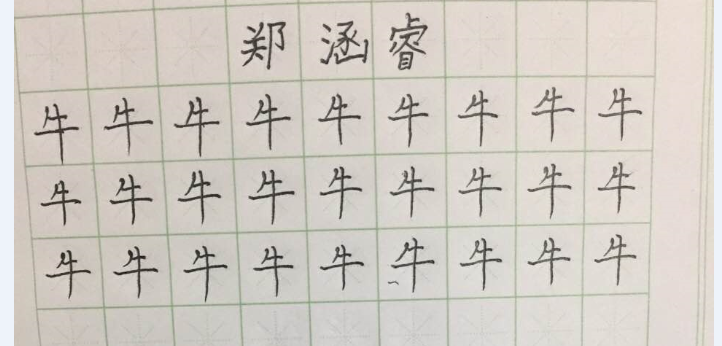 郑涵睿
牛牛牛牛牛牛牛牛牛
牛牛牛牛牛牛牛牛牛
牛牛牛牛牛牛牛牛牛